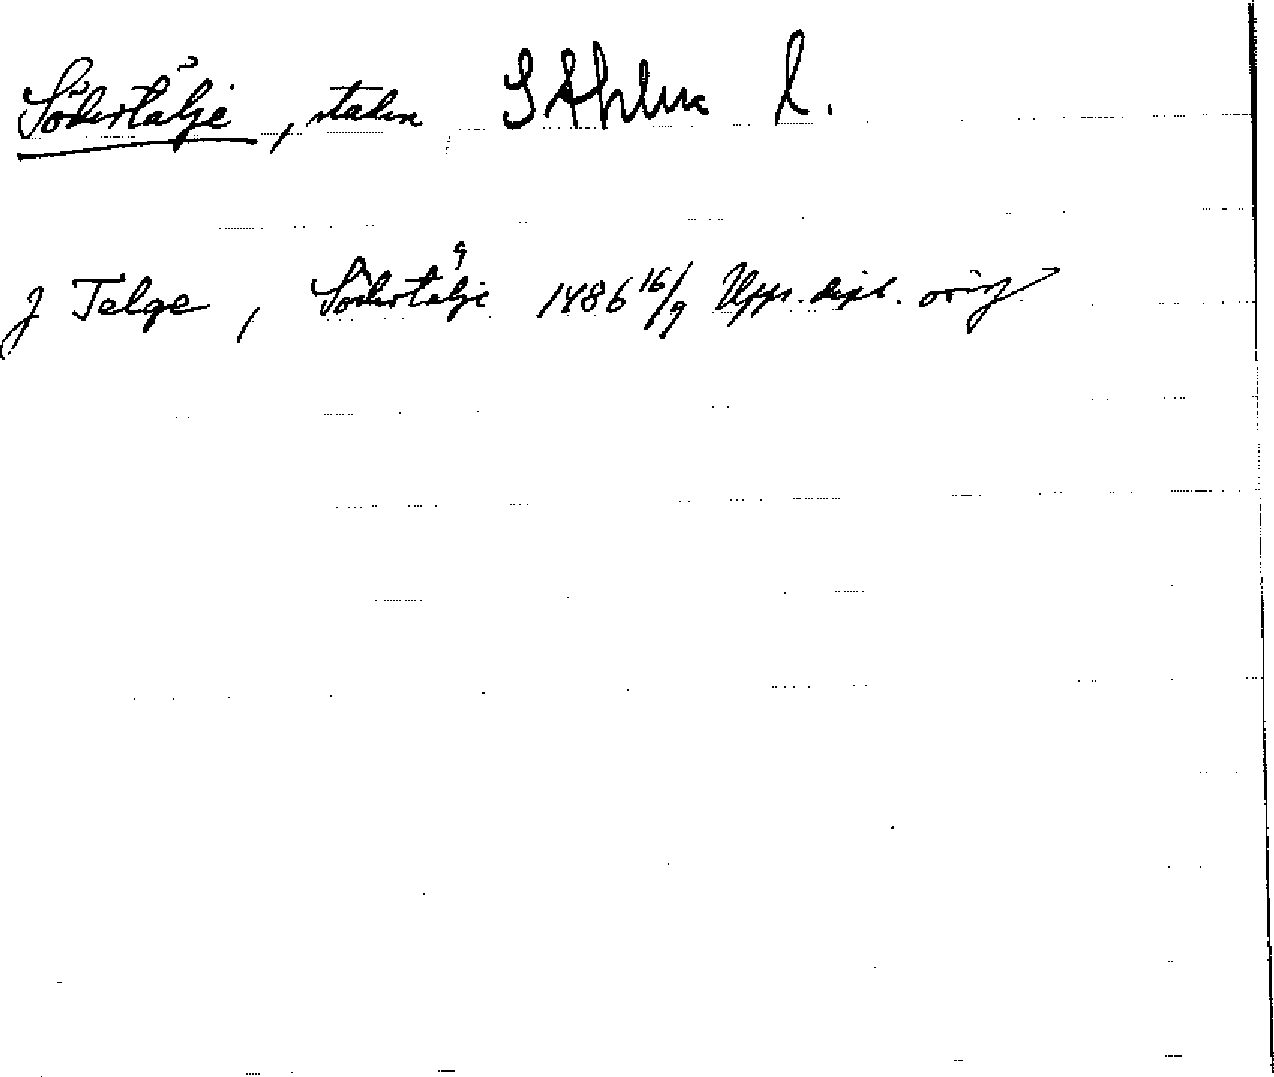 Södertälje, staden S Ahlm l.
j Telge, Södertälje 1486 16/9 Upps. dipl. orig